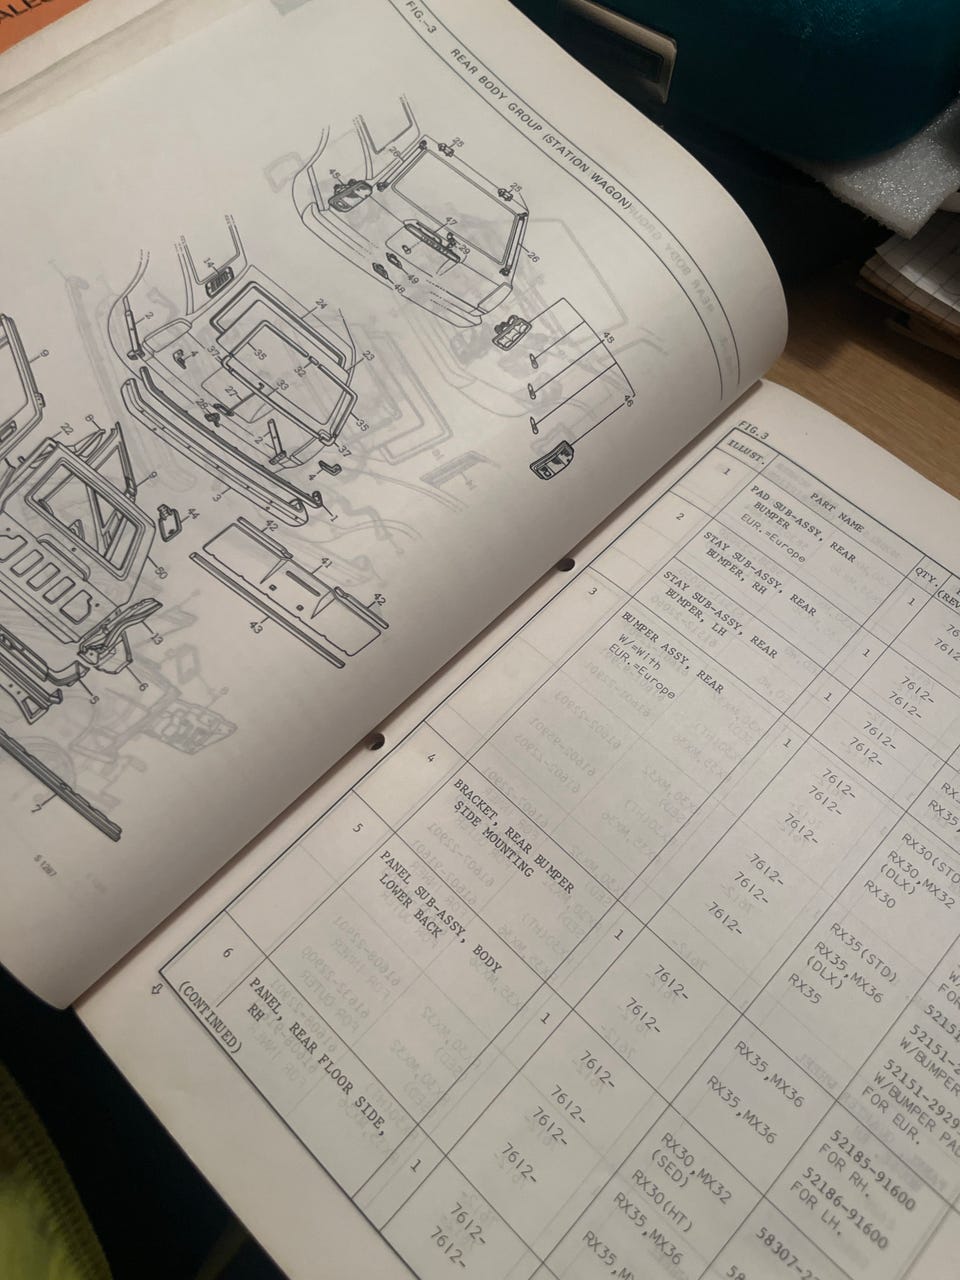 FIG.-3 REAR BODY GROUP (STATION WAGON)
25
26
25
45
47
29
26
49
48
14
24
2
4
37
35
32
23
33
27
28
35
2
37
4
3
1
45
46
9
8
22
9
44
42
41
42
43
50
13
6
5
7
S 1287
FIG.3
ILLUST.
PART NAME
QTY.
1
PAD SUB-ASSY, REAR
BUMPER
EUR.=Europe
1
2
STAY SUB-ASSY, REAR
BUMPER, RH
1
7612-
7612-
STAY SUB-ASSY, REAR
BUMPER, LH
1
7612-
7612-
3
BUMPER ASSY, REAR
W/=With
EUR.=Europe
1
7612-
7612-
7612-
7612-
7612-
7612-
RX30(STD)
RX30,MX32
(DLX)
RX30
RX35(STD)
RX35,MX36
(DLX)
RX35
W/BUMPER
52151-2929
W/BUMPER PAD
FOR EUR.
4
BRACKET, REAR BUMPER
SIDE MOUNTING
1
7612-
7612-
RX35,MX36
RX35,MX36
52185-91600
FOR RH.
52186-91600
FOR LH.
5
PANEL SUB-ASSY, BODY
LOWER BACK
1
7612-
7612-
7612-
RX30,MX32
(SED)
RX30(HT)
RX35,MX36
6
PANEL, REAR FLOOR SIDE,
RH
1
7612-
7612-
(CONTINUED)